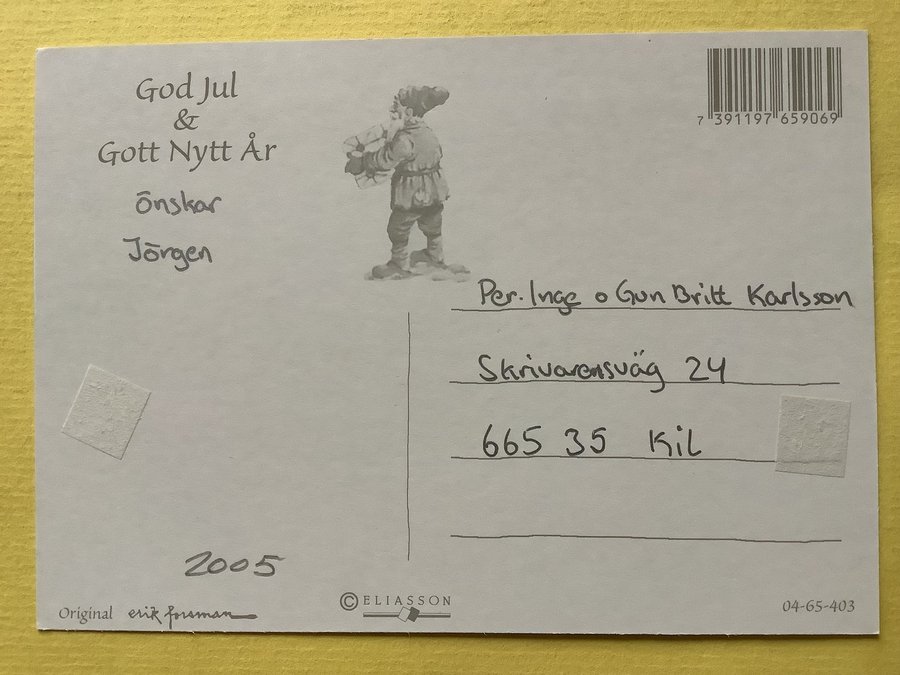 God Jul
&
Gott Nytt År
önskar
Jörgen
7 391197 659069
Per-Inge o Gun Britt Karlsson
Skrivarensväg 24
665 35 Kil
2005
Original erik forsman
© ELIASSON
04-65-403